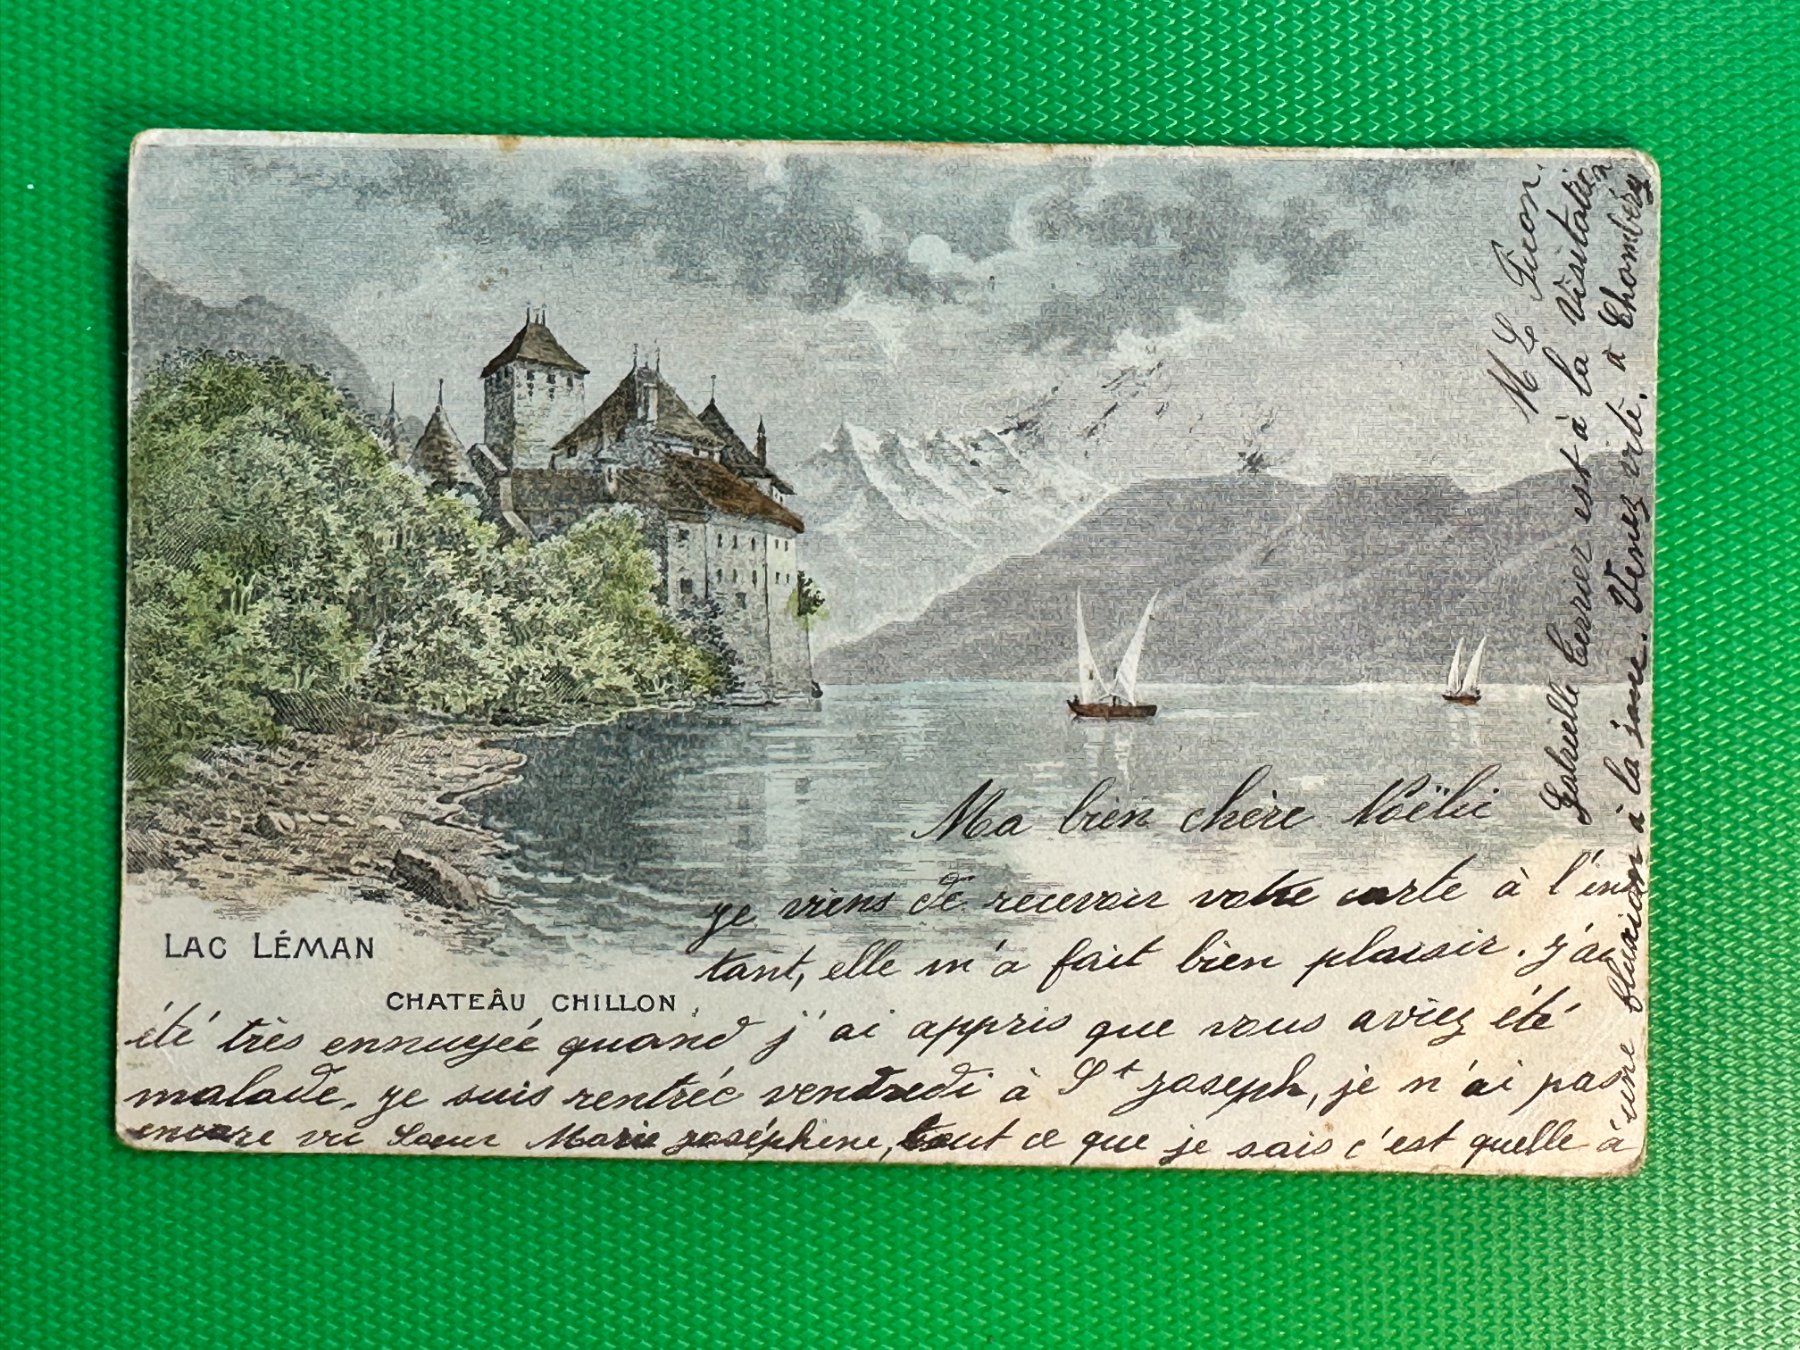 LAC LÉMAN
CHATEÂU CHILLON.
Ma bien chère Noëlie
je viens de recevoir votre carte à l'ins
tant, elle m'a fait bien plaisir. J'ai
été très ennuyée quand j'ai appris que vous aviez été
malade. Je suis rentrée vendredi à St Joseph, je n'ai pas
encore vu Sœur Marie Joséphine, tout ce que je sais c'est quelle à
une fluxion à la joue. Venez vite.
Gabrielle Terrier est à la Visitation
à Chambéry
M L